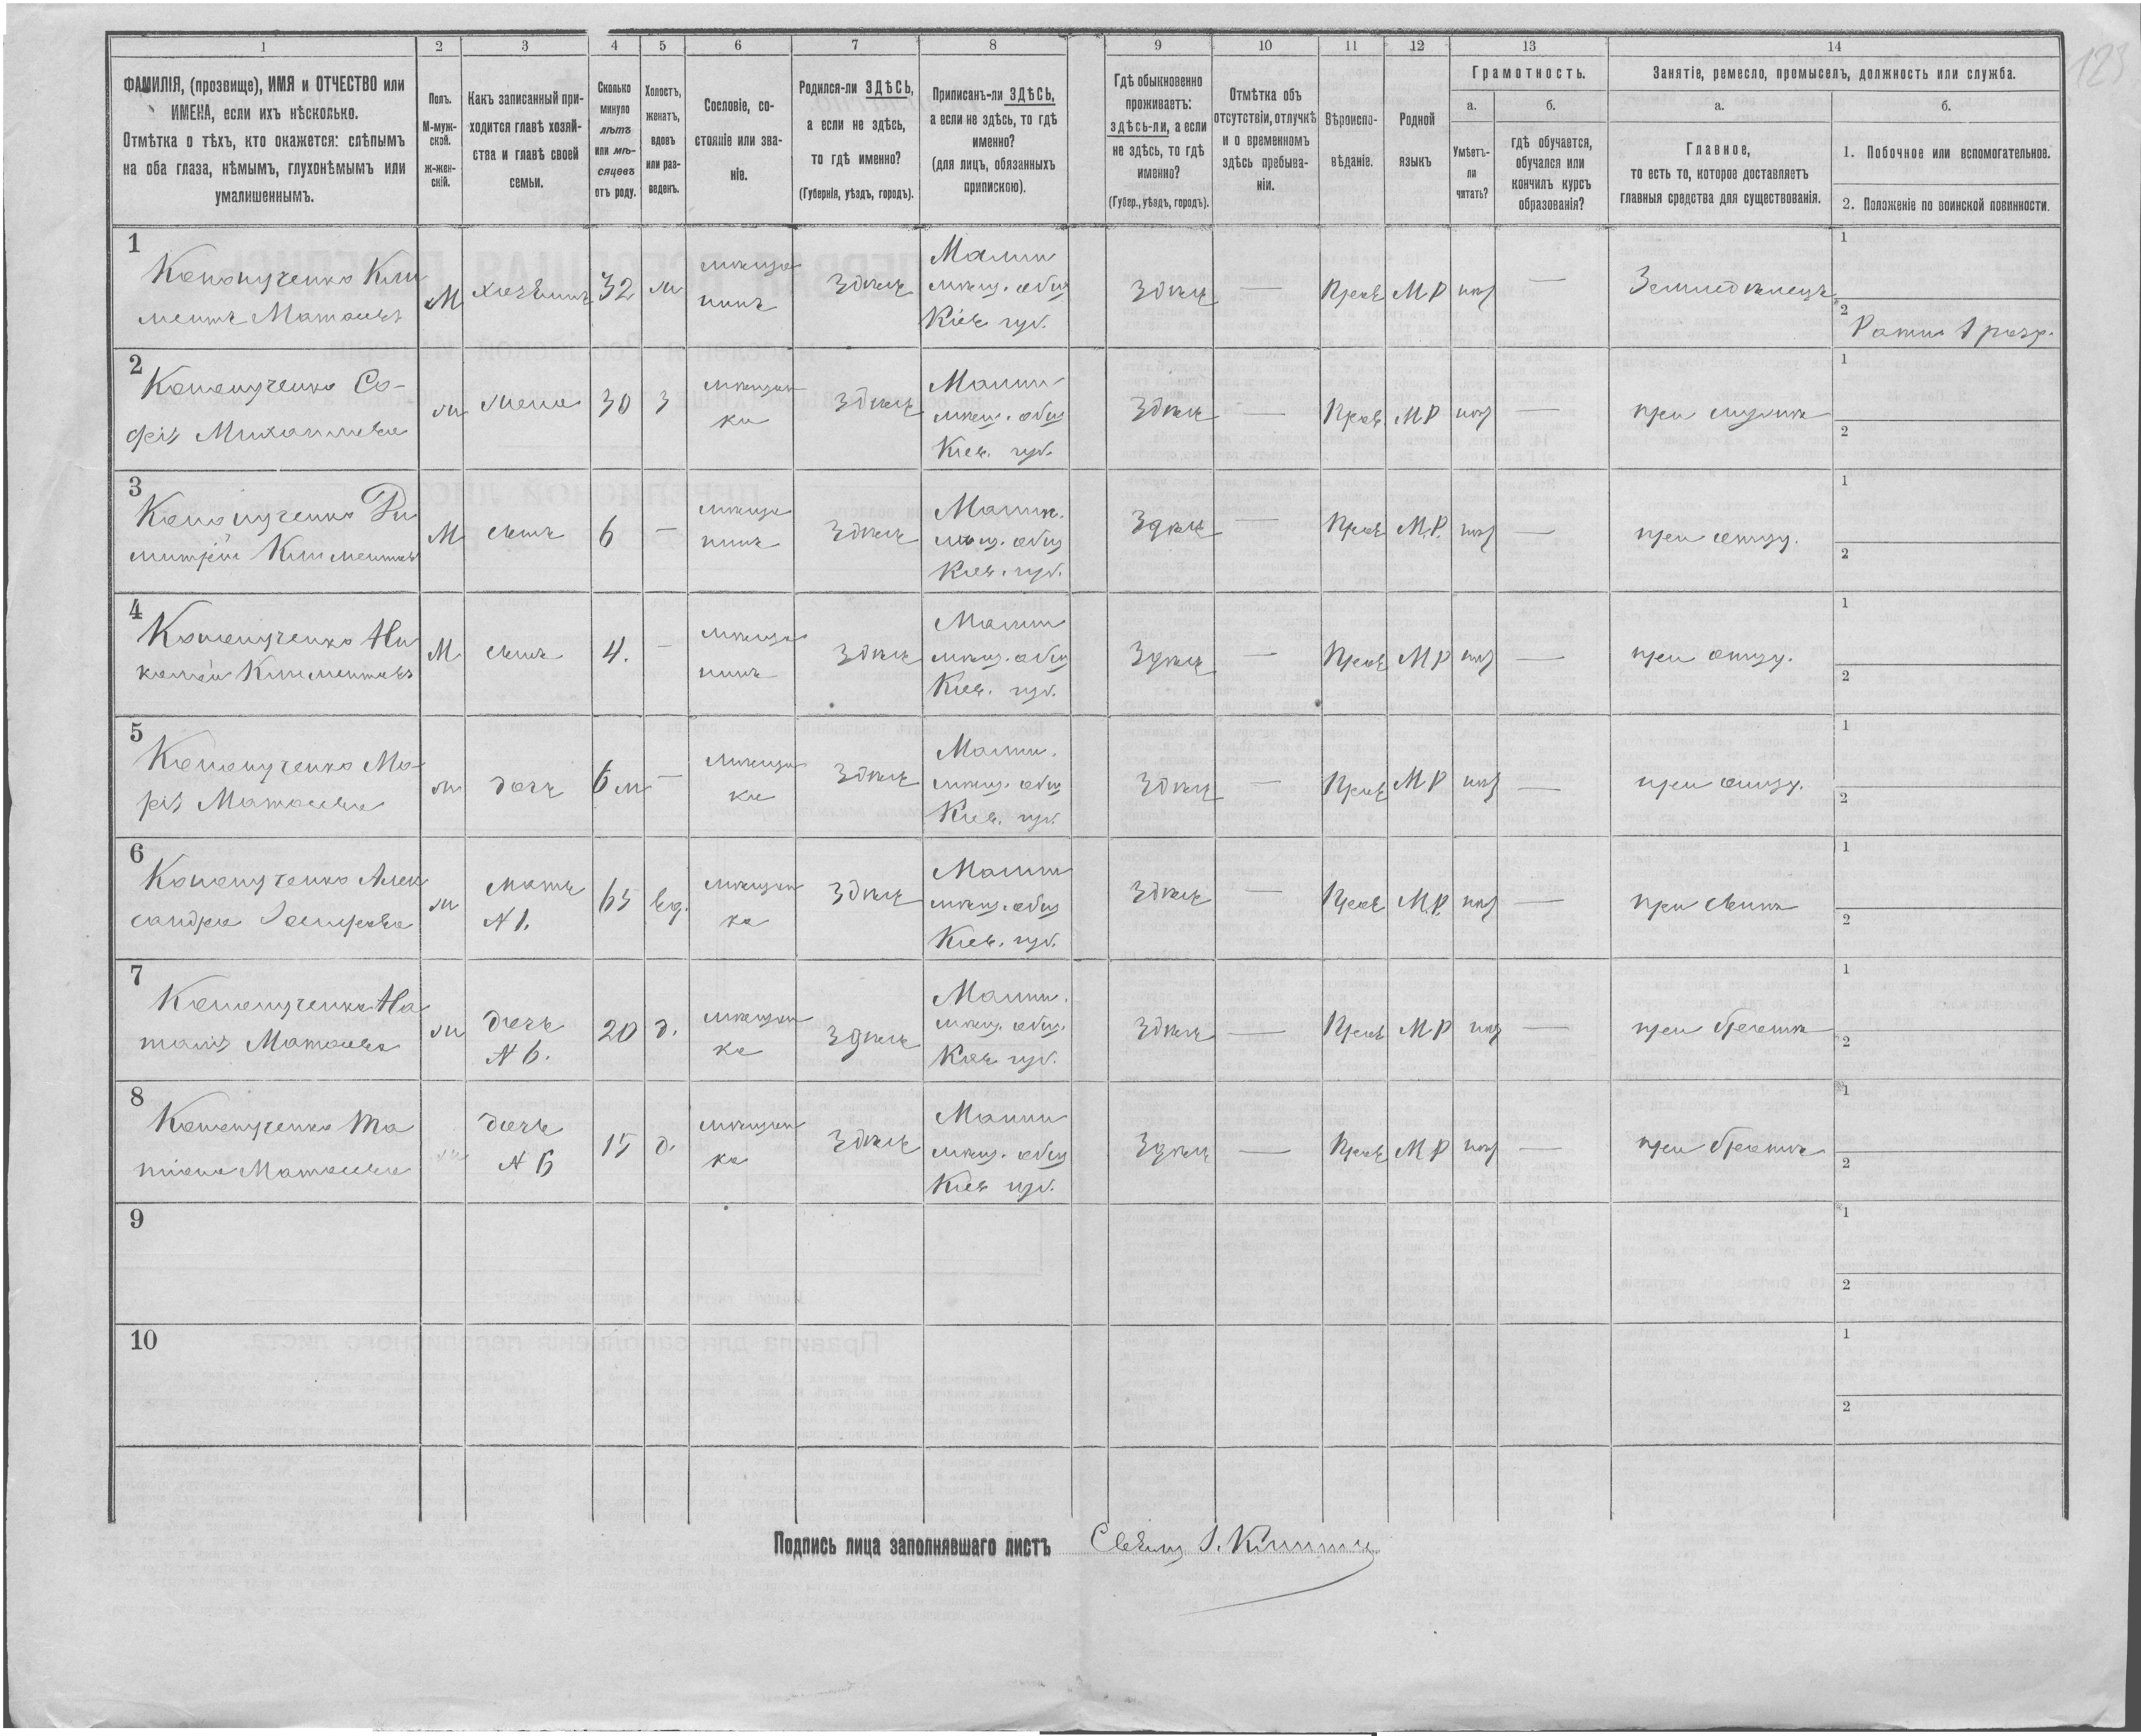 123
1 2 3 4 5 6 7 8 9 10 11 12 13 14
ФАМИЛІЯ, (прозвище), ИМЯ и ОТЧЕСТВО или
ИМЕНА, если ихъ нѣсколько.
Отмѣтка о тѣхъ, кто окажется: слѣпымъ
на оба глаза, нѣмымъ, глухонѣмымъ или
умалишеннымъ.
Полъ.
М-муж-
ской.
ж-жен-
скій.
Какъ записанный при-
ходится главѣ хозяй-
ства и главѣ своей
семьи.
Сколько
минуло
лѣтъ
или мѣ-
сяцевъ
отъ роду.
Холостъ,
женатъ,
вдовъ
или раз-
веденъ.
Сословіе, со-
стояніе или зва-
ніе.
Родился-ли ЗДѢСЬ,
а если не здѣсь,
то гдѣ именно?
(Губернія, уѣздъ, городъ).
Приписанъ-ли ЗДѢСЬ,
а если не здѣсь, то гдѣ
именно?
(для лицъ, обязанныхъ
припискою).
Гдѣ обыкновенно
проживаетъ:
здѣсь-ли, а если
не здѣсь, то гдѣ
именно?
(Губер., уѣздъ, городъ).
Отмѣтка объ
отсутствіи, отлучкѣ
и о временномъ
здѣсь пребыва-
ніи.
Вѣроиспо-
вѣданіе.
Родной
языкъ
Грамотность.
а. б.
Умѣетъ-
ли
читать?
гдѣ обучается,
обучался или
кончилъ курсъ
образованія?
Занятіе, ремесло, промыселъ, должность или служба.
а. б.
Главное,
то есть то, которое доставляетъ
главныя средства для существованія.
1. Побочное или вспомогательное.
2. Положеніе по воинской повинности.
1
Конопученко Кли
ментъ
М хозяинъ 32 ж
мѣща
нинъ
здѣсь
Малин
мѣщ. общ
Кіев губ.
здѣсь — Прав М Р нѣт —
Земледѣлецъ
1
2
Ратник 1 разр.
2
Конопученко Со-
фія Михайлова
ж жена 30 з
мѣщан
ка
здѣсь
Малин
мѣщ. общ
Кіев. губ.
здѣсь — Прав М Р нѣт —
при мужѣ
1
2
3
Конопученко Ди
митрій Климентьев
М сынъ 6 —
мѣща
нинъ
здѣсь
Малин.
мѣщ. общ
Кіев. губ.
здѣсь — Прав М.Р. нѣт —
при отцу.
1
2
4
Конопученко Ни
колай Климентьев
М сынъ 4. —
мѣща
нинъ
здѣсь
Малин
мѣщ. общ
Кіев. губ.
здѣсь — Прав М Р нѣт —
при отцу.
1
2
5
Конопученко Ма-
рія
ж дочь 6 м —
мѣщан
ка
здѣсь
Малин.
мѣщ. общ
Кіев. губ.
здѣсь — Прав М Р нѣт —
при отцу.
1
2
6
Конопученко Алек
сандра
ж
мать
№ 1.
65 вд.
мѣщан
ка
здѣсь
Малин
мѣщ. общ
Кіев. губ.
здѣсь — Прав М.Р. нѣт —
при сынѣ
1
2
7
Конопученко На
талія
ж
дочь
№ 6.
20 д.
мѣщан
ка
здѣсь
Малин.
мѣщ. общ.
Кіев губ.
здѣсь — Прав М Р нѣт —
при братѣ
1
2
8
Конопученко Та
тіана
ж
дочь
№ 6
15 д.
мѣщан
ка
здѣсь
Малин
мѣщ. общ
Кіев губ.
здѣсь — Прав М Р нѣт —
при братѣ
1
2
9
1
2
10
1
2
Подпись лица заполнявшаго листъ